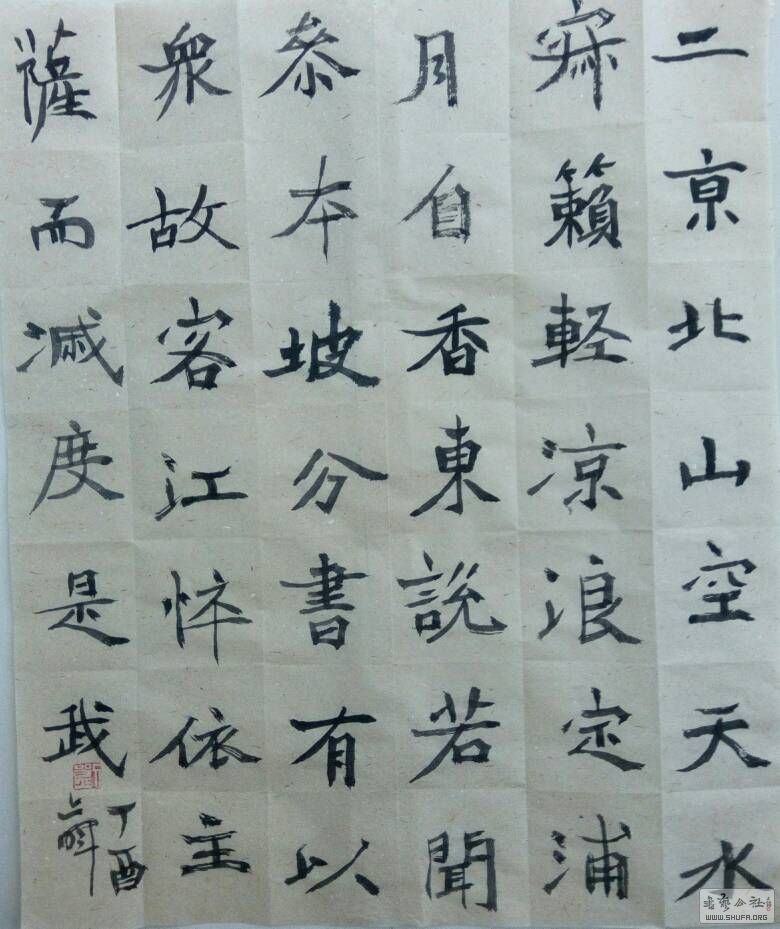 二京北山空天水
寂籟軽凉浪定浦
月自香東說若聞
泰本坡分書有以
衆故客江悴依主
薩而滅度是武
丁酉
書藝公社
WWW.SHUFA.ORG